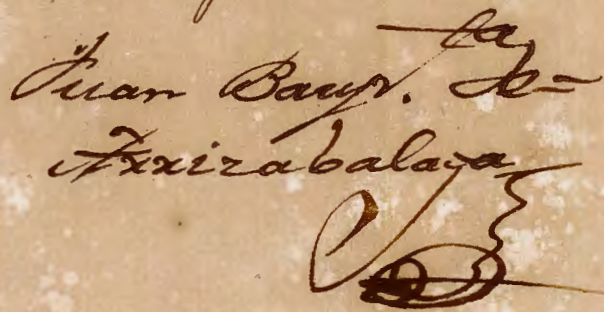 Juan Baup.ta de=
Arrizabalaga